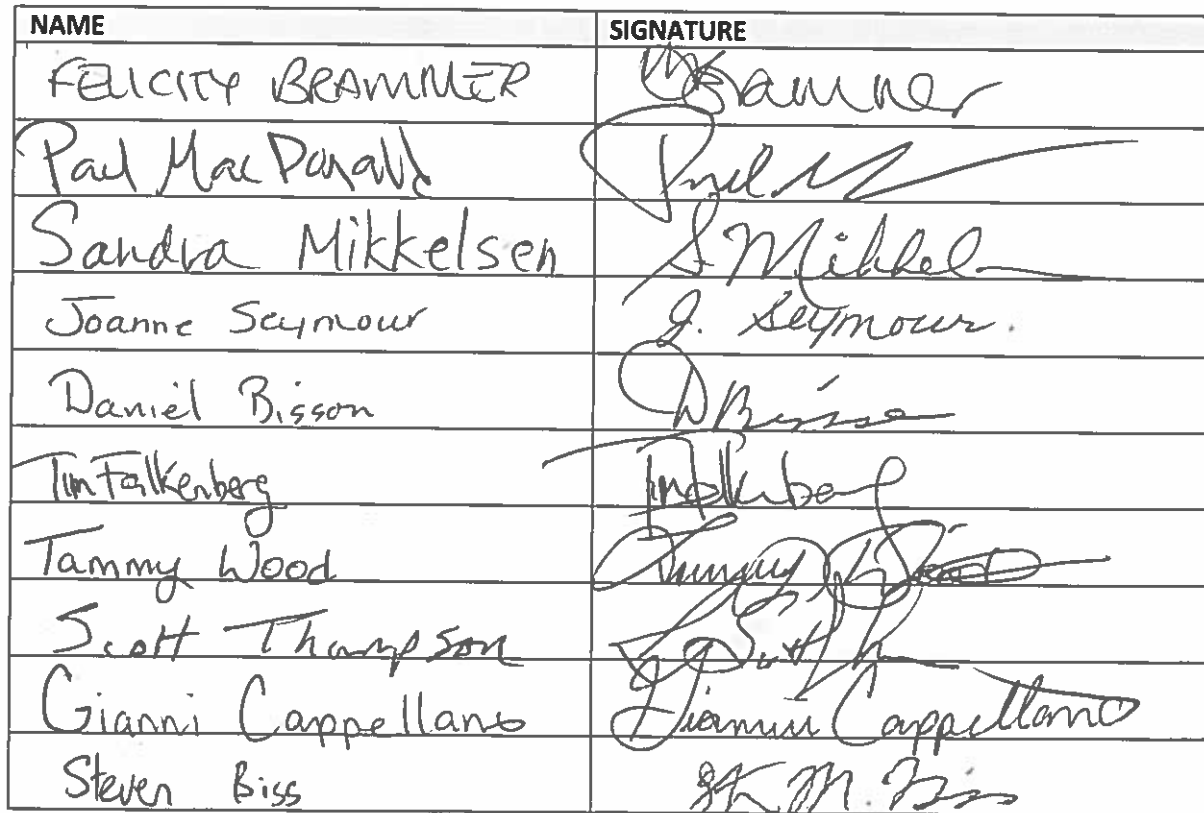 NAME SIGNATURE
FELICITY BRAMMER Brammer
Paul MacDonald Paul M
Sandra Mikkelsen S Mikkel
Joanne Seymour J. Seymour.
Daniel Bisson D Bisso
Tim Falkenberg
Tammy Wood Tammy Wood
Scott Thompson Scott Th
Gianni Cappellano Gianni Cappellano
Steven Biss St M Biss